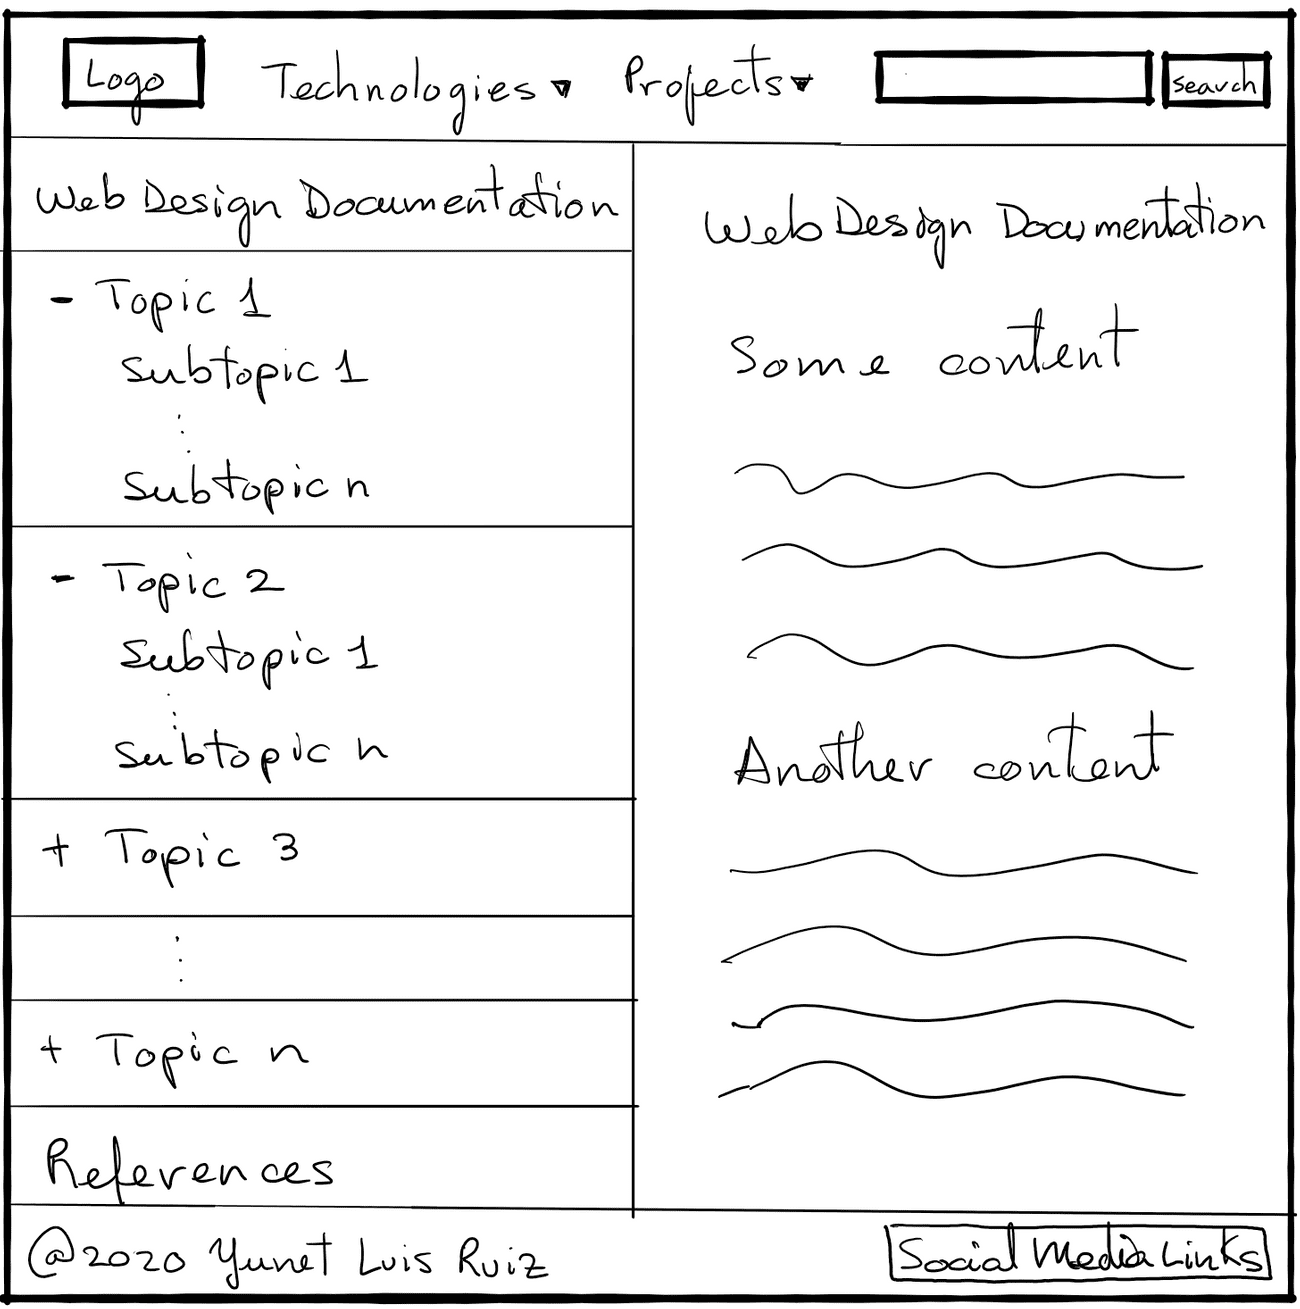 Logo Technologies ▾ Projects ▾ search
Web Design Documentation
- Topic 1
Subtopic 1
⋮
Subtopic n
- Topic 2
Subtopic 1
⋮
Subtopic n
+ Topic 3
⋮
+ Topic n
References
Web Design Documentation
Some content
Another content
@2020 Yunet Luis Ruiz
Social Media Links